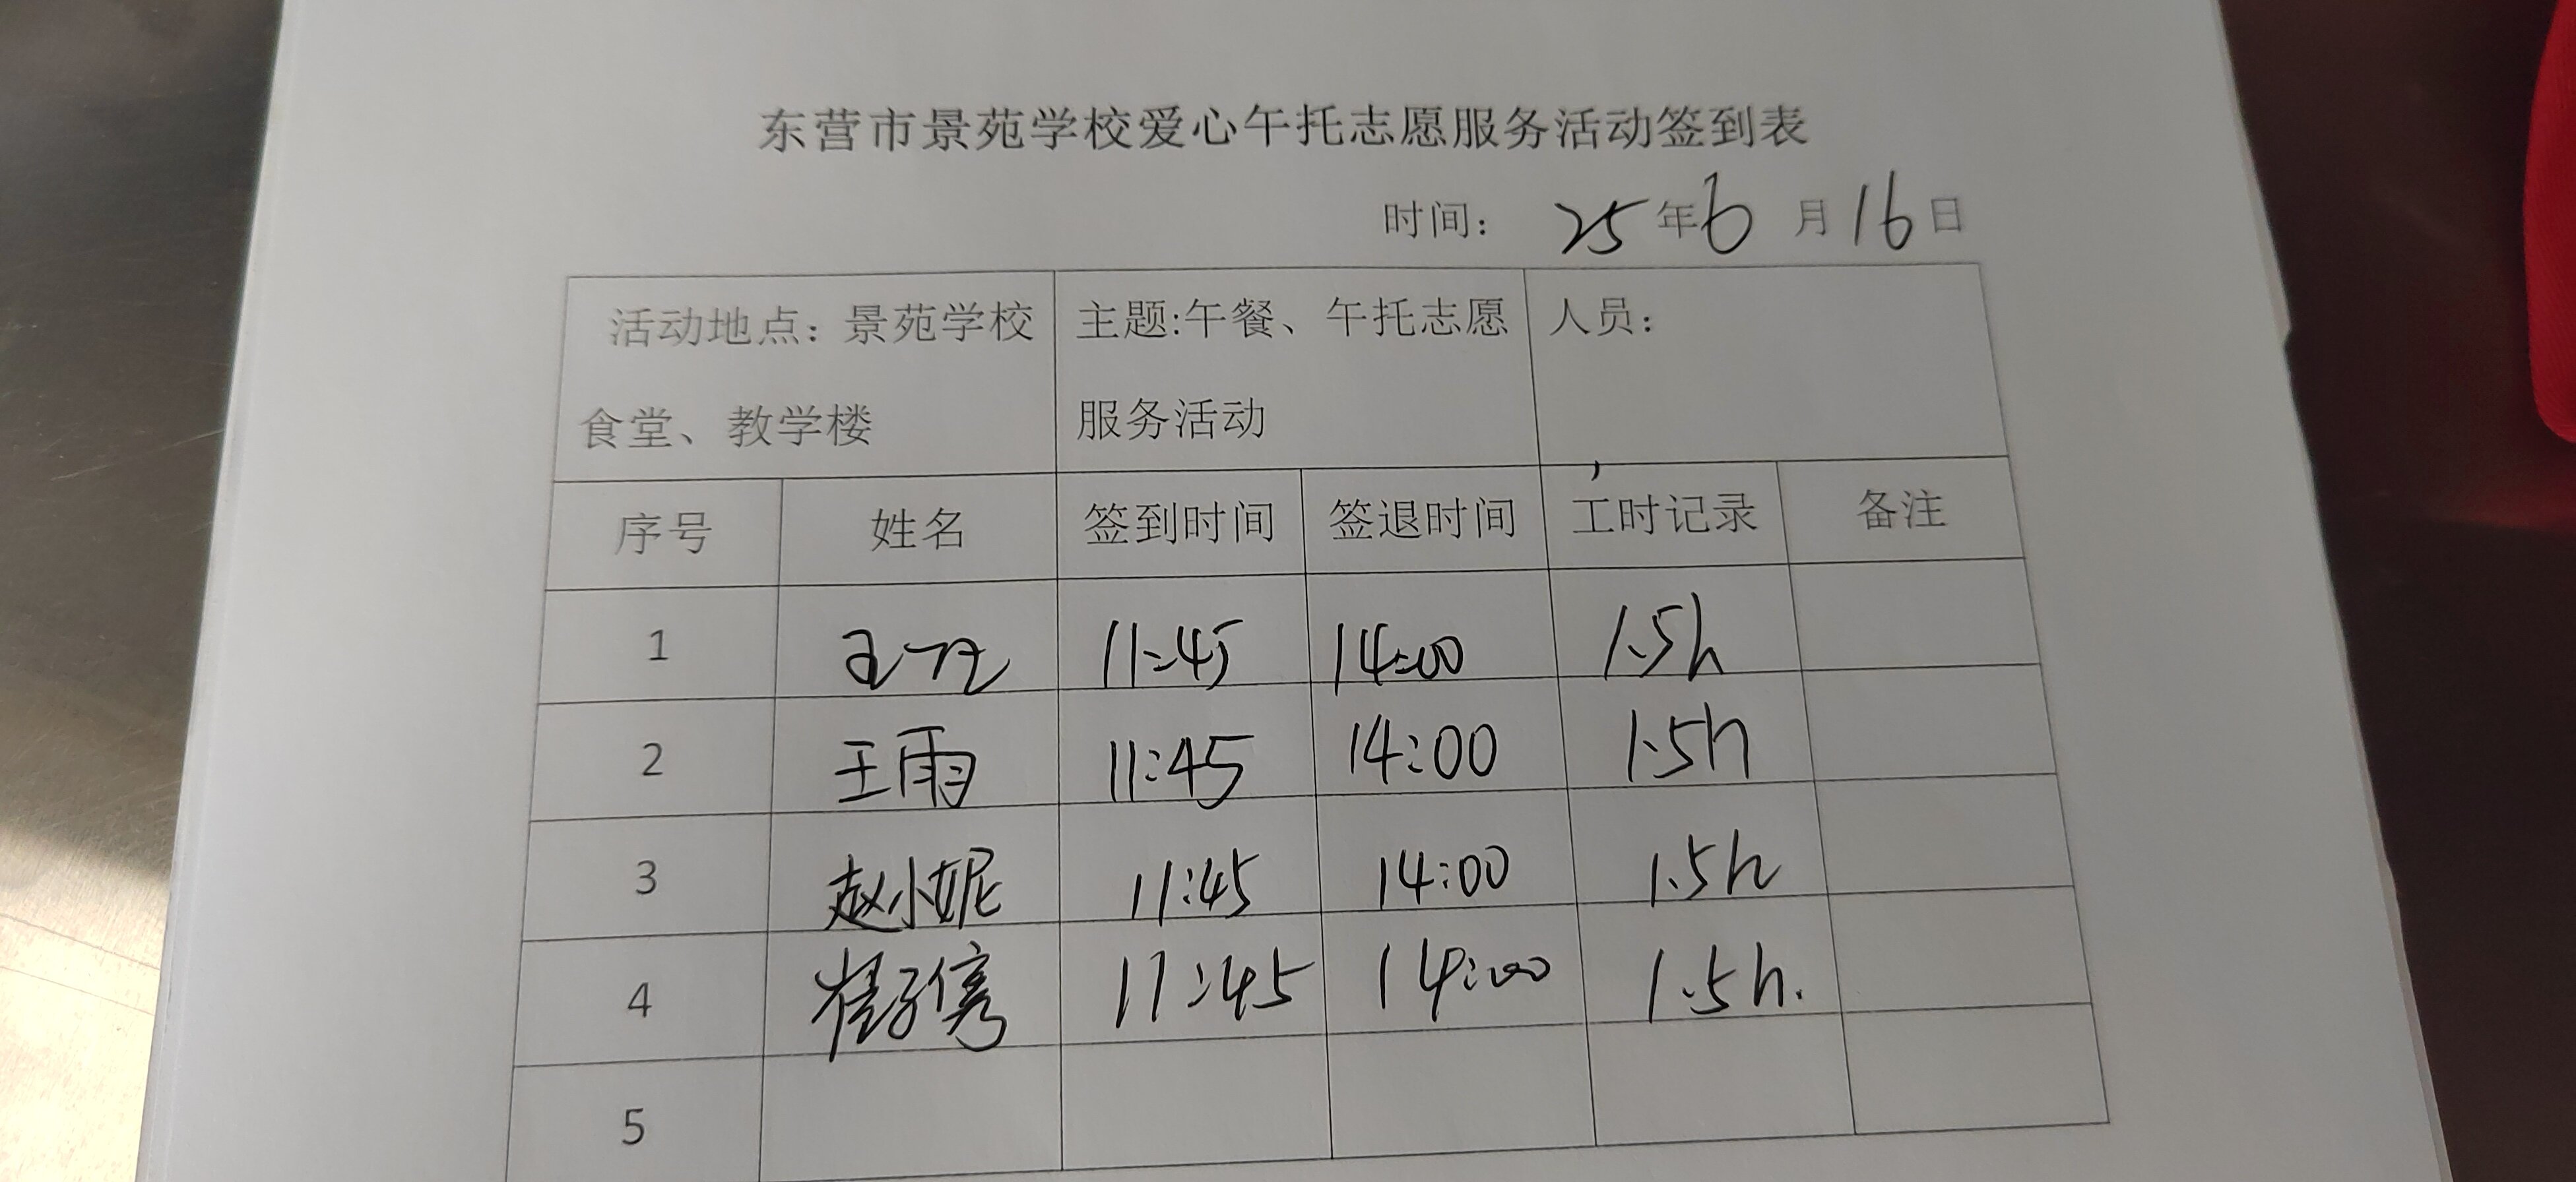 东营市景苑学校爱心午托志愿服务活动签到表
时间： 25年6月16日
活动地点：景苑学校食堂、教学楼 主题:午餐、午托志愿服务活动 人员：
序号 姓名 签到时间 签退时间 工时记录 备注
1 11:45 14:00 1.5h
2 王雨 11:45 14:00 1.5h
3 赵小妮 11:45 14:00 1.5h
4 11:45 14:00 1.5h.
5